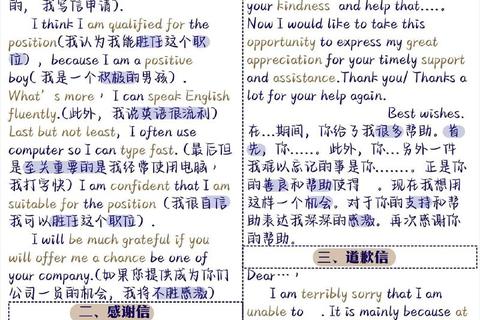 的，我写信申请).
I think I am qualified for the
position(我认为我能胜任这个职
位), because I am a positive
boy(我是一个积极的男孩).
What's more, I can speak English
fluently.(此外，我说英语很流利)
Last but not least, I often use
computer so I can type fast. (最后但
是至关重要的是我经常使用电脑，
我打字快) I am confident that I am
suitable for the position (我很自信
我可以胜任这个职位).
I will be much grateful if you
will offer me a chance be one of
your company.(如果您提供成为你们
公司一员的机会，我将不胜感激)
二、感谢信
your kindness and help that....
Now I would like to take this
opportunity to express my great
appreciation for your timely support
and assistance.Thank you/ Thanks a
lot for your help again.
Best wishes.
在…期间，你给了我很多帮助。首
先，你……。此外，你…另外一件
我难以忘记的事是你……。正是你
的善良和帮助使得 。现在我想用
这样一个机会。对于你的支持和帮
助表达我深深的感激。再次感谢你
的帮助。
三、道歉信
Dear…，
I am terribly sorry that I am
unable to . It is mainly because at